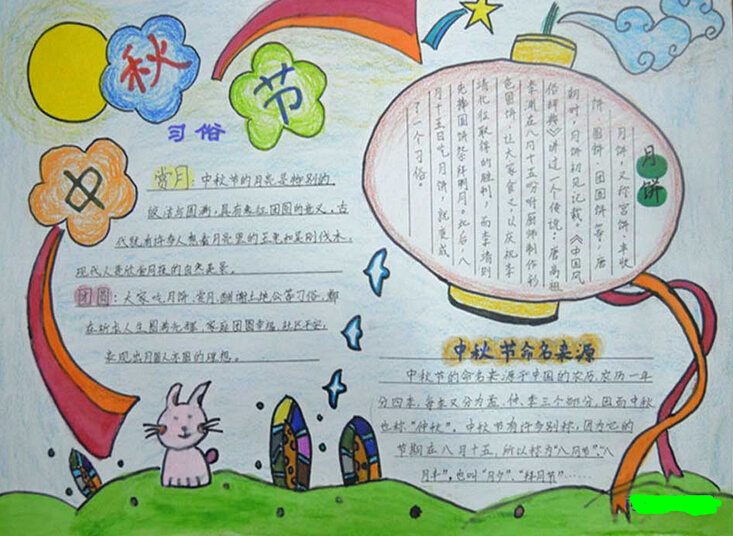 中
秋
节
习俗
赏月：中秋节的月亮是特别的
皎洁与圆满，具有象征团圆的意义，古
代就有许多人想着月亮里的玉兔和吴刚伐木，
现代人喜欢赏月夜的自然美景。
团圆：大家吃月饼、赏月、酬谢土地公等习俗，都
在祈求人生圆满光辉、家庭团圆幸福、社区平安，
表现出月圆人亦圆的理想。
月饼
月饼，又称宫饼、丰收
饼、团圆饼等，唐
初时，月饼初见记载。《中国风
俗辞典》讲过一个传说：唐高祖
李渊在八月十五吩咐厨师制作彩
色圆饼，让大家食之，以庆祝李
靖北征取得的胜利，而李靖则
先捧圆饼祭拜明月。此后，八
月十五日吃月饼，就变成
了一个习俗。
中秋节命名来源
中秋节的命名来源于中国的农历，农历一年
分四季，每季又分为孟、仲、季三个部分，因而中秋
也称“仲秋”。中秋节有许多别称，因为它的
节期在八月十五，所以称为“八月节”、“八
月半”，也叫“月夕”、“拜月节”……